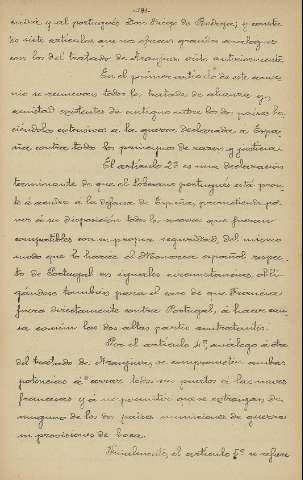 - 191 -
y el portugués Don Diego de Noronha; y consta
de siete artículos que nos ofrecen grandes analogías
con los del tratado de Aranjuez visto anteriormente.
En el primer artículo de este convenio
se renuevan todos los tratados de alianza y
amistad existentes de antiguo entre los dos países ha-
ciéndolos extensivos a la guerra declarada a Espa-
ña contra todos los principios de razon y justicia.
El artículo 2º es una declaración
terminante de que el Soberano portugués está pron-
to a acudir a la defensa de España, prometiendo po-
ner a su disposición todas las fuerzas que fueran
compatibles con su propia seguridad, del mismo
modo que lo haría el Monarca español respec-
to de Portugal en iguales circunstancias. Obli-
gándose también para el caso de que Francia
fuera directamente contra Portugal, á hacer cau-
sa común las dos altas partes contratantes.
Por el artículo 4º, análogo á otro
del tratado de Aranjuez, se comprometen ambas
potencias á cerrar todos sus puertos a las naves
francesas y á no permitir que se extraigan de
ninguno de los dos países municiones de guerra
ni provisiones de boca.
Finalmente, el artículo 5º se refiere